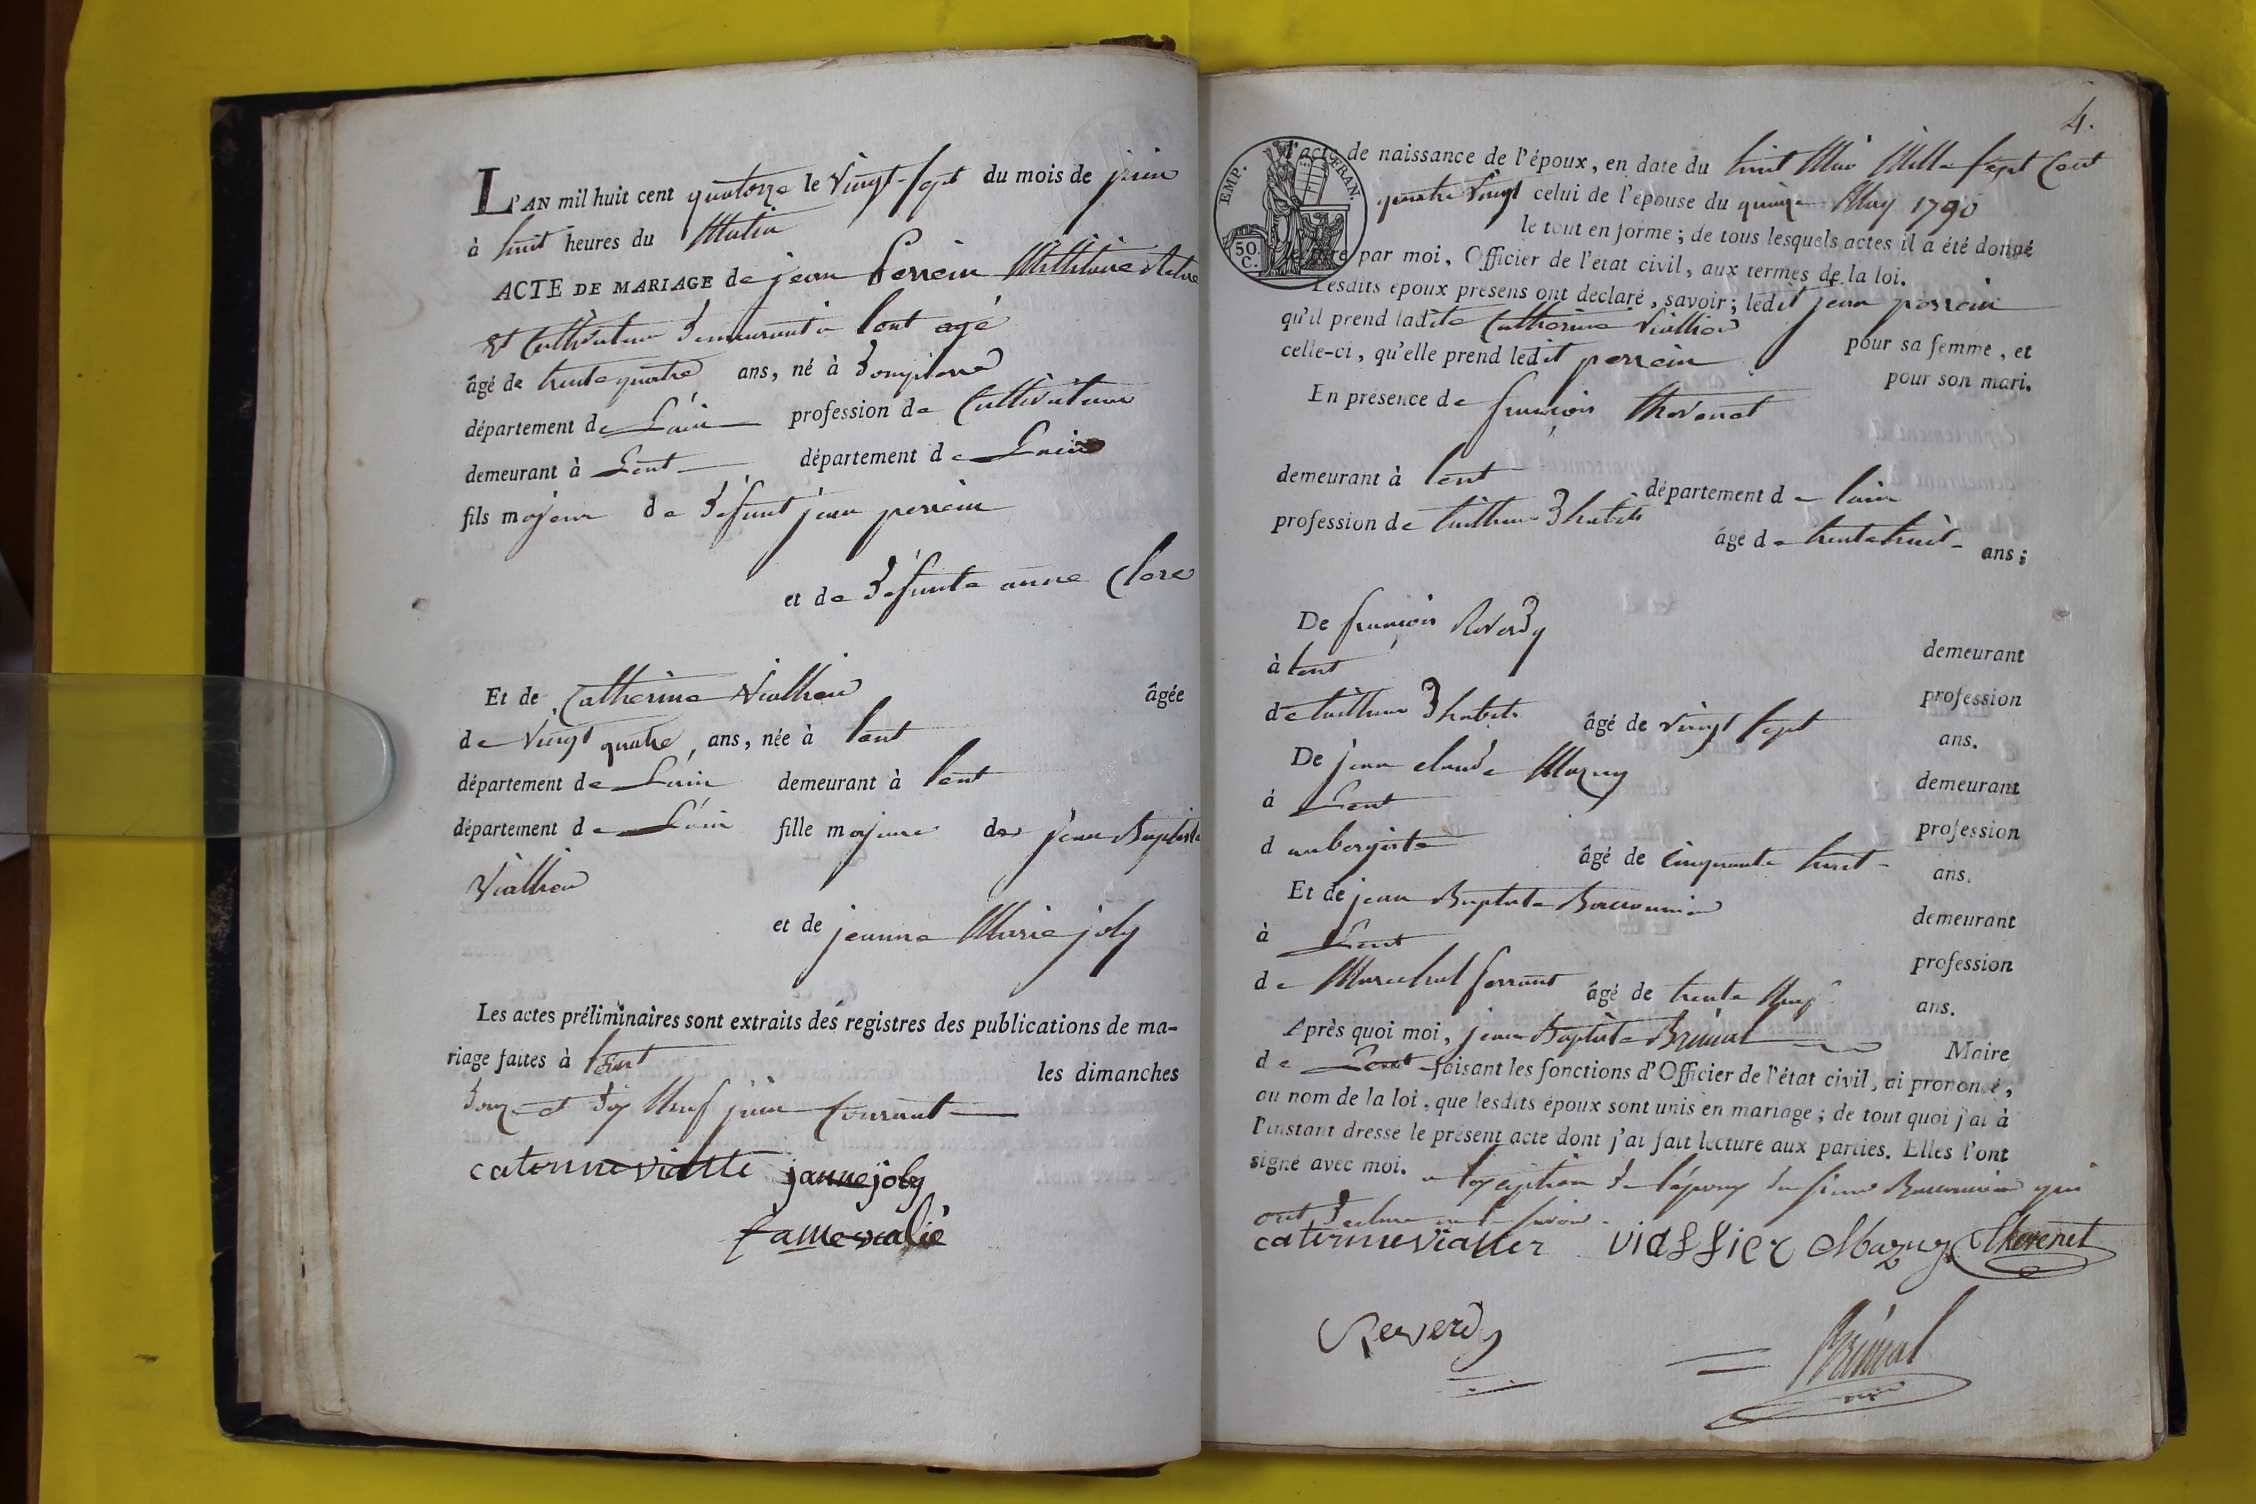 L'AN mil huit cent quatorze le vingt-sept du mois de juin
à huit heures du Matin
ACTE DE MARIAGE de jean Perrein Millitaire
et Cultivateur demeurant a Lent agé
âgé de trente quatre ans, né à Dompierre
département de L'ain profession de Cultivateur
demeurant à Lent département de L'ain
fils majeur de défunt jean perrein
et de défunte anne Clere
Et de Catherine Viallier âgée
de vingt quatre ans, née à Lent
département de L'ain demeurant à Lent
département de L'ain fille majeure de jean Baptiste
Viallier
et de jeanne Marie joly
Les actes préliminaires sont extraits des registres des publications de ma-
riage faites à Lent les dimanches
douze et dix Neuf juin Courant
caterine vialle janne joly
fame valiè
4.
EMP. FRAN.
50 C.
l'acte de naissance de l'époux, en date du huit Mai Mille sept Cent
quatre vingt celui de l'épouse du quinze May 1790
le tout en forme; de tous lesquels actes il a été donné
lecture par moi, Officier de l'état civil, aux termes de la loi.
Lesdits époux présens ont déclaré, savoir; ledit jean perrein
qu'il prend ladite Catherine Viallier pour sa femme, et
celle-ci, qu'elle prend ledit perrein pour son mari.
En présence de françois thevenet
demeurant à Lent département de l'ain
profession de tailleur d'habits âgé de trente huit ans;
De françois Reverdy demeurant
à Lent profession
de tailleur d'habits âgé de vingt sept ans.
De jean claude Mazuy demeurant
à Lent profession
d'aubergiste âgé de cinquante huit ans.
Et de jean Baptiste demeurant
à Lent profession
de Marechal ferrant âgé de trente Neuf ans.
Après quoi moi, jean Baptiste Brunal Maire
de Lent faisant les fonctions d'Officier de l'état civil, ai prononcé,
au nom de la loi, que lesdits époux sont unis en mariage; de tout quoi j'ai à
l'instant dressé le présent acte dont j'ai fait lecture aux parties. Elles l'ont
signé avec moi. a l'exception de l'époux du sieur qui
ont declaré ne le savoir.
caterine vialler viallier Mazuy Thevenet
Reverdy